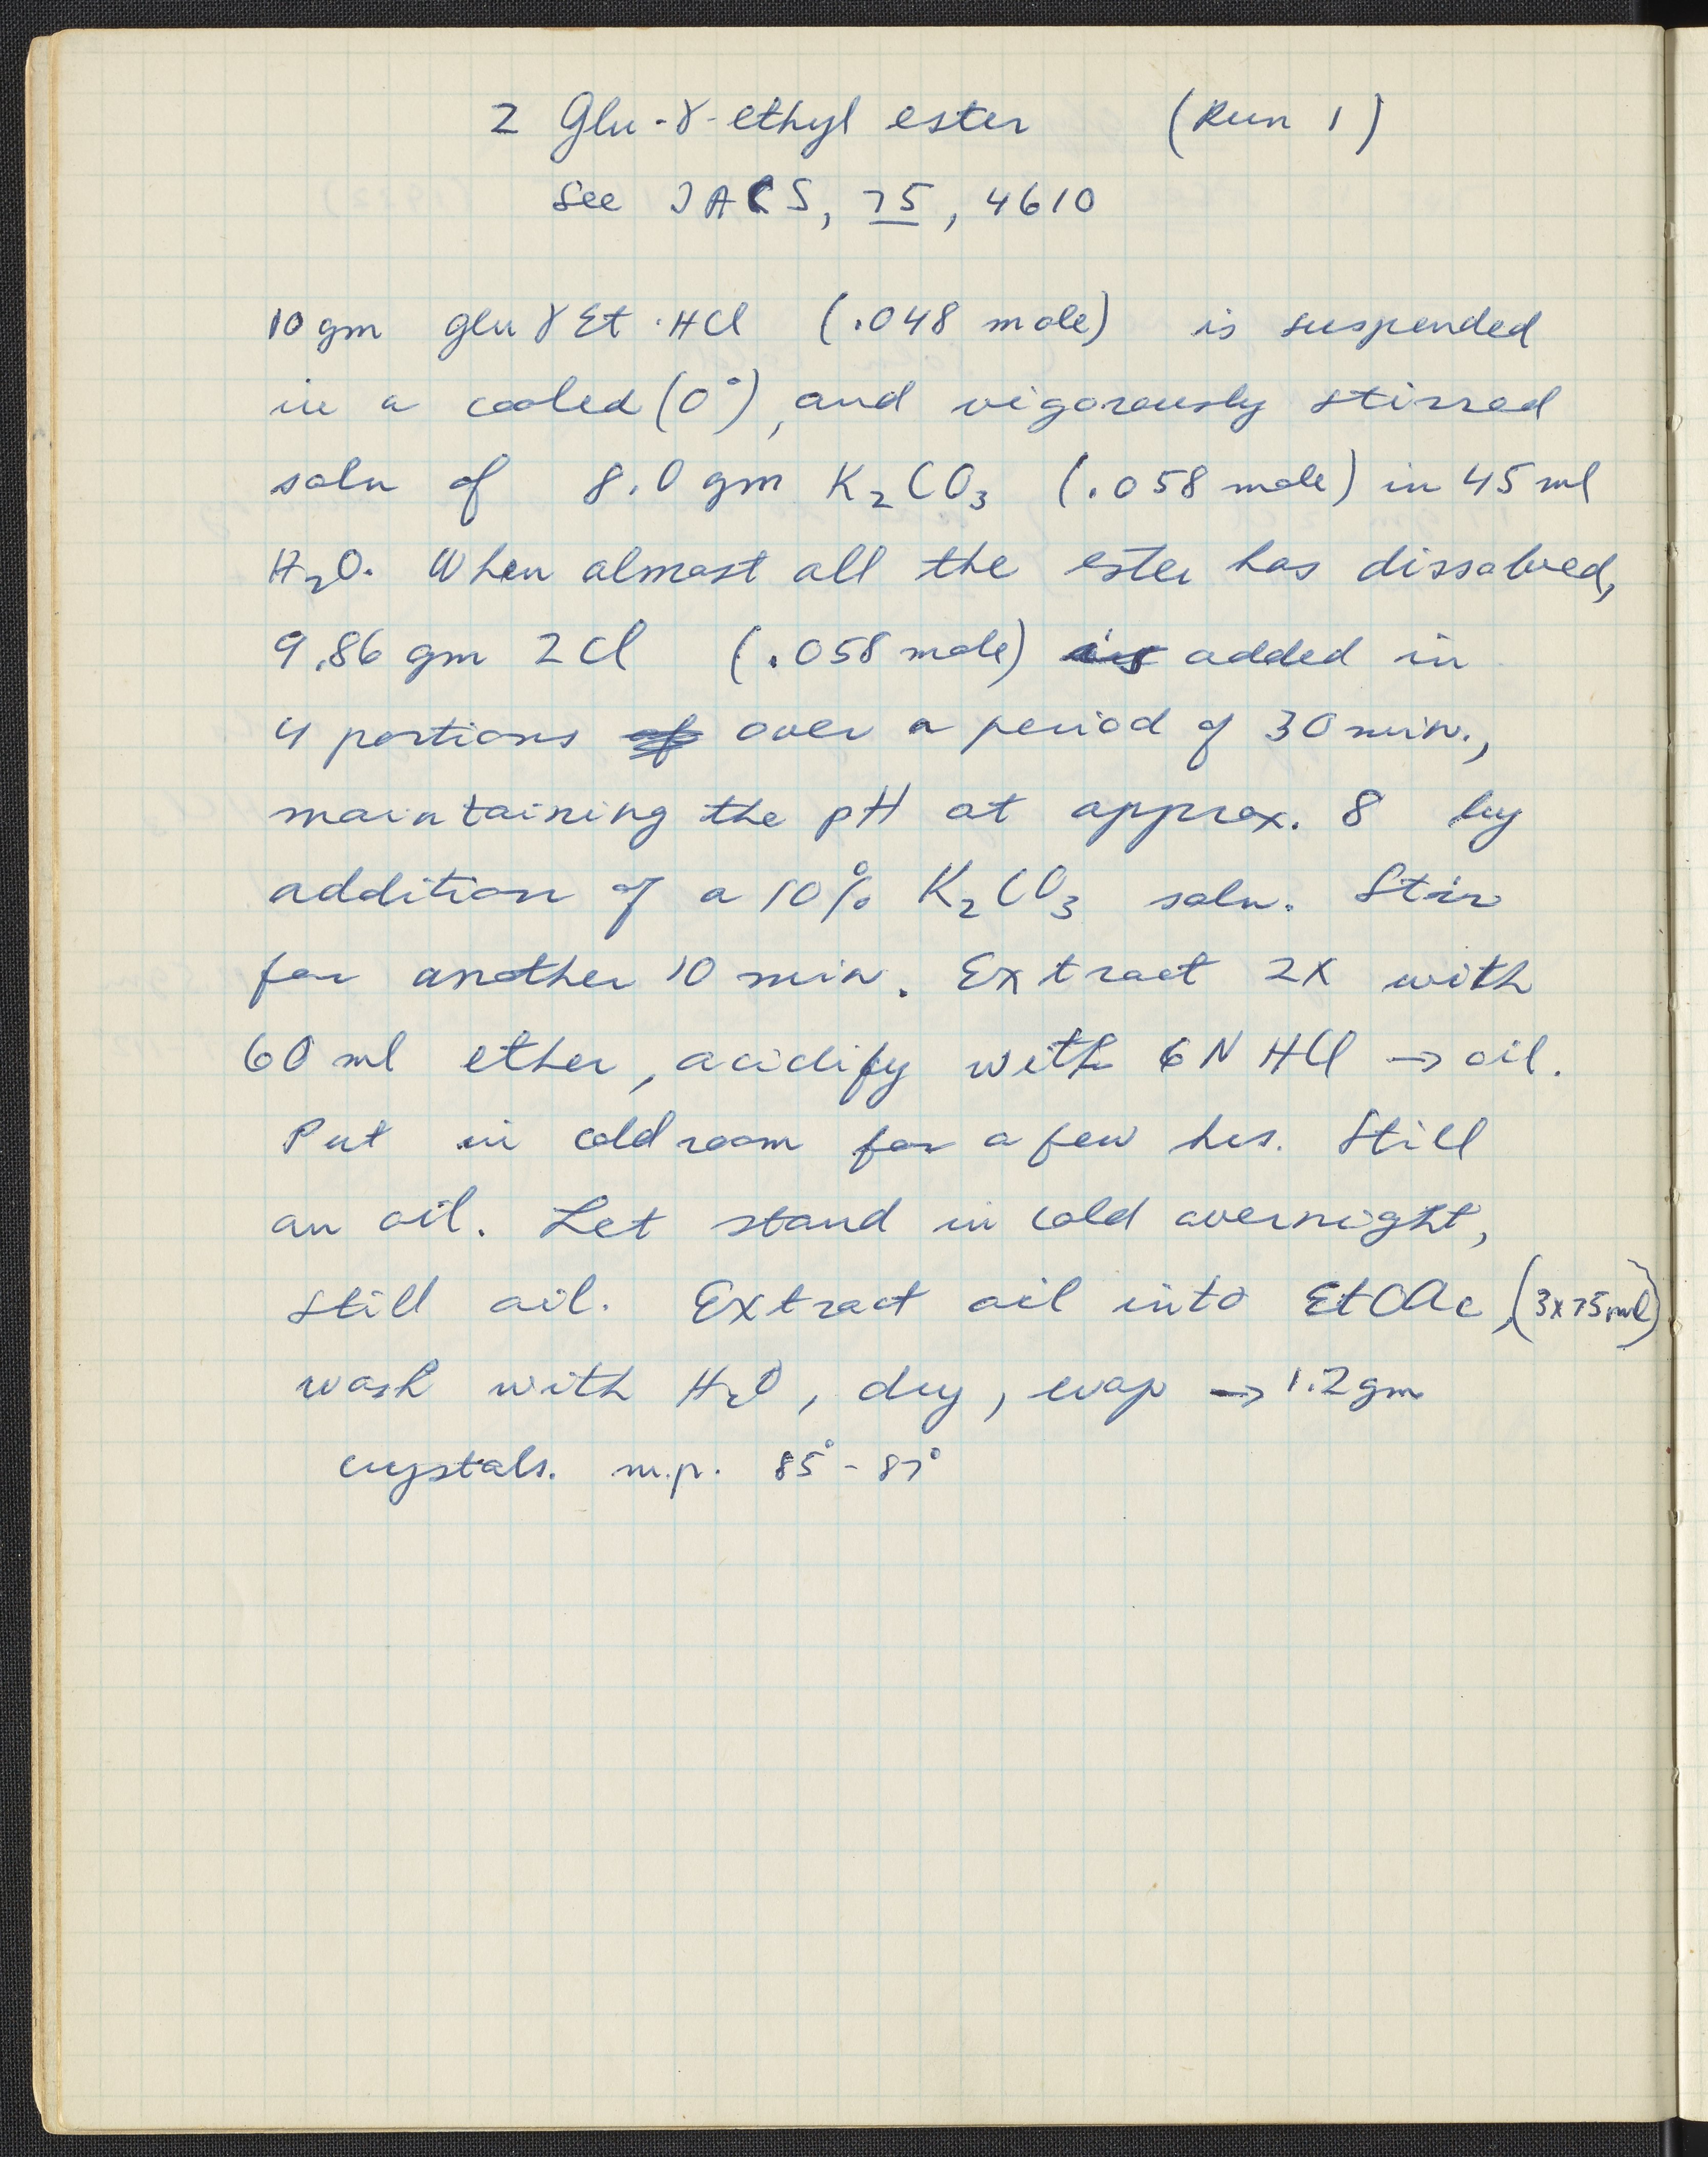 Z Glu-γ-ethyl ester (Run 1)
See JACS, 75, 4610
10 gm glu γ Et ·HCl (.048 mole) is suspended
in a cooled (0°), and vigorously stirred
soln of 8.0 gm K₂CO₃ (.058 mole) in 45 ml
H₂O. When almost all the ester has dissolved,
9.86 gm ZCl (.058 mole) is added in
4 portions of over a period of 30 min.,
maintaining the pH at approx. 8 by
addition of a 10% K₂CO₃ soln. Stir
for another 10 min. Extract 2X with
60 ml ether, acidify with 6 N HCl → oil.
Put in cold room for a few hrs. Still
an oil. Let stand in cold overnight,
still oil. Extract oil into EtOAc, (3x75ml)
wash with H₂O, dry, evap → 1.2 gm
crystals. m.p. 85° - 87°